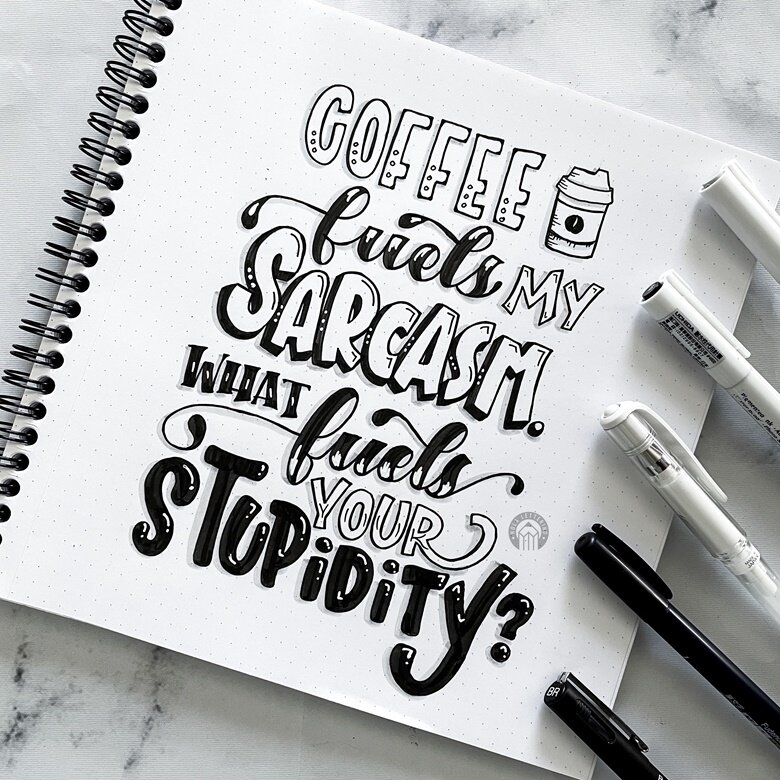 COFFEE
fuels MY
SARCASM.
WHAT fuels
YOUR
STUPIDITY?
BR